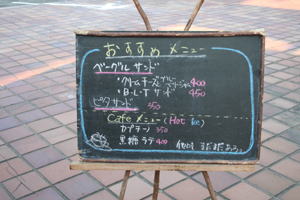 おすすめ メニュー
ベーグルサンド
・クリームチーズ ブルーベリージャム 400
・B・L・T サンド 450
ピタサンド 350
Cafe メニュー (Hot Ice)
カプチーノ 350
黒糖ラテ 400 他にも まだまだある